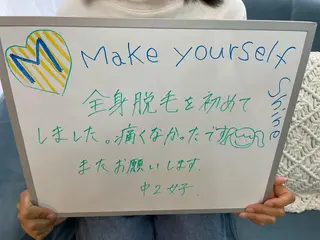 M Make yourself shine
全身脱毛を初めて
しました。痛くなかったです
またお願いします.
中2女子